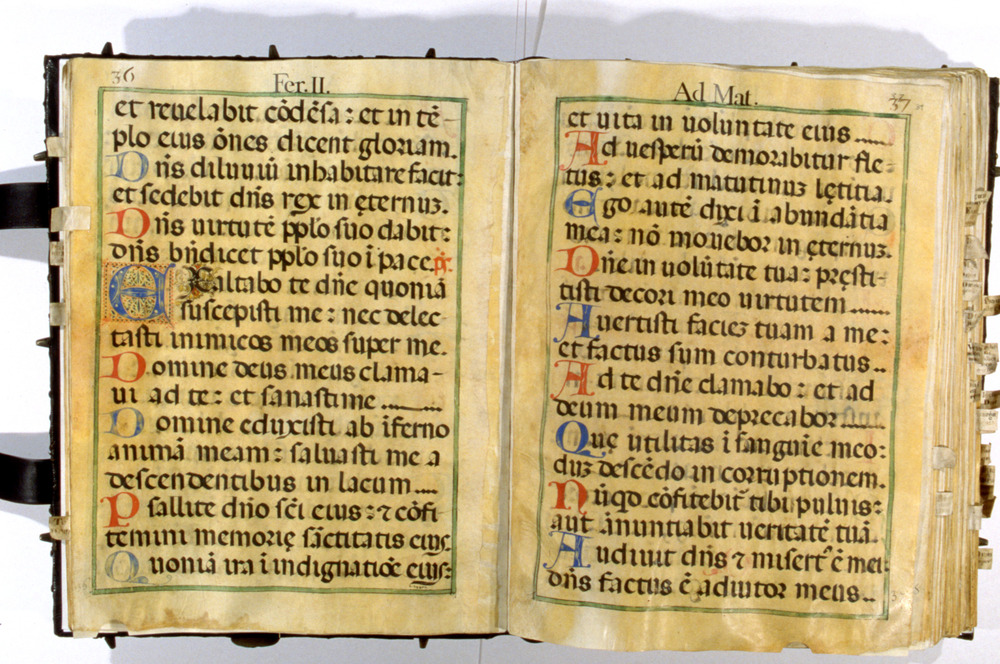 36
Fer. II.
et reuelabit cōdēsa : et in tē-
plo eius ōnes dicent gloriam.
Dn̄s diluuiū inhabitare facit:
et sedebit dn̄s rex in ęternuꝫ.
Dn̄s uirtutē pplo suo dabit:
dn̄s bn̄dicet pplo suo ī pace. ps.
Exaltabo te dn̄e quoniā
suscepisti me : nec delec-
tasti inimicos meos super me.
Domine deus meus clama-
ui ad te : et sanastime
Domine eduxisti ab īferno
animā meam : saluasti me a
descendentibus in lacum
Psallite dn̄o scī eius : ⁊ cōfi
temini memorię sāctitatis eius.
Quoniā ira ī indignatiōe eius:
Ad Mat.
37
et uita in uoluntate eius
Ad uesperū demorabitur fle-
tus : et ad matutinuꝫ lętitia.
Ego autē dixi ī abundātia
mea : nō mouebor in ęternuꝫ.
Dn̄e in uolūtate tua : pręsti-
tisti decori meo uirtutem
Auertisti facieꝫ tuam a me:
et factus sum conturbatus
Ad te dn̄e clamabo : et ad
deum meum deprecabor
Quę utilitas ī sanguīe meo:
duꝫ descēdo in corruptionem.
Nūqd cōfitebit̄ tibi puluis:
aut ānuntiabit ueritatē tuā.
Audiuit dn̄s ⁊ misert̄ ē mei
dn̄s factus ē adiutor meus